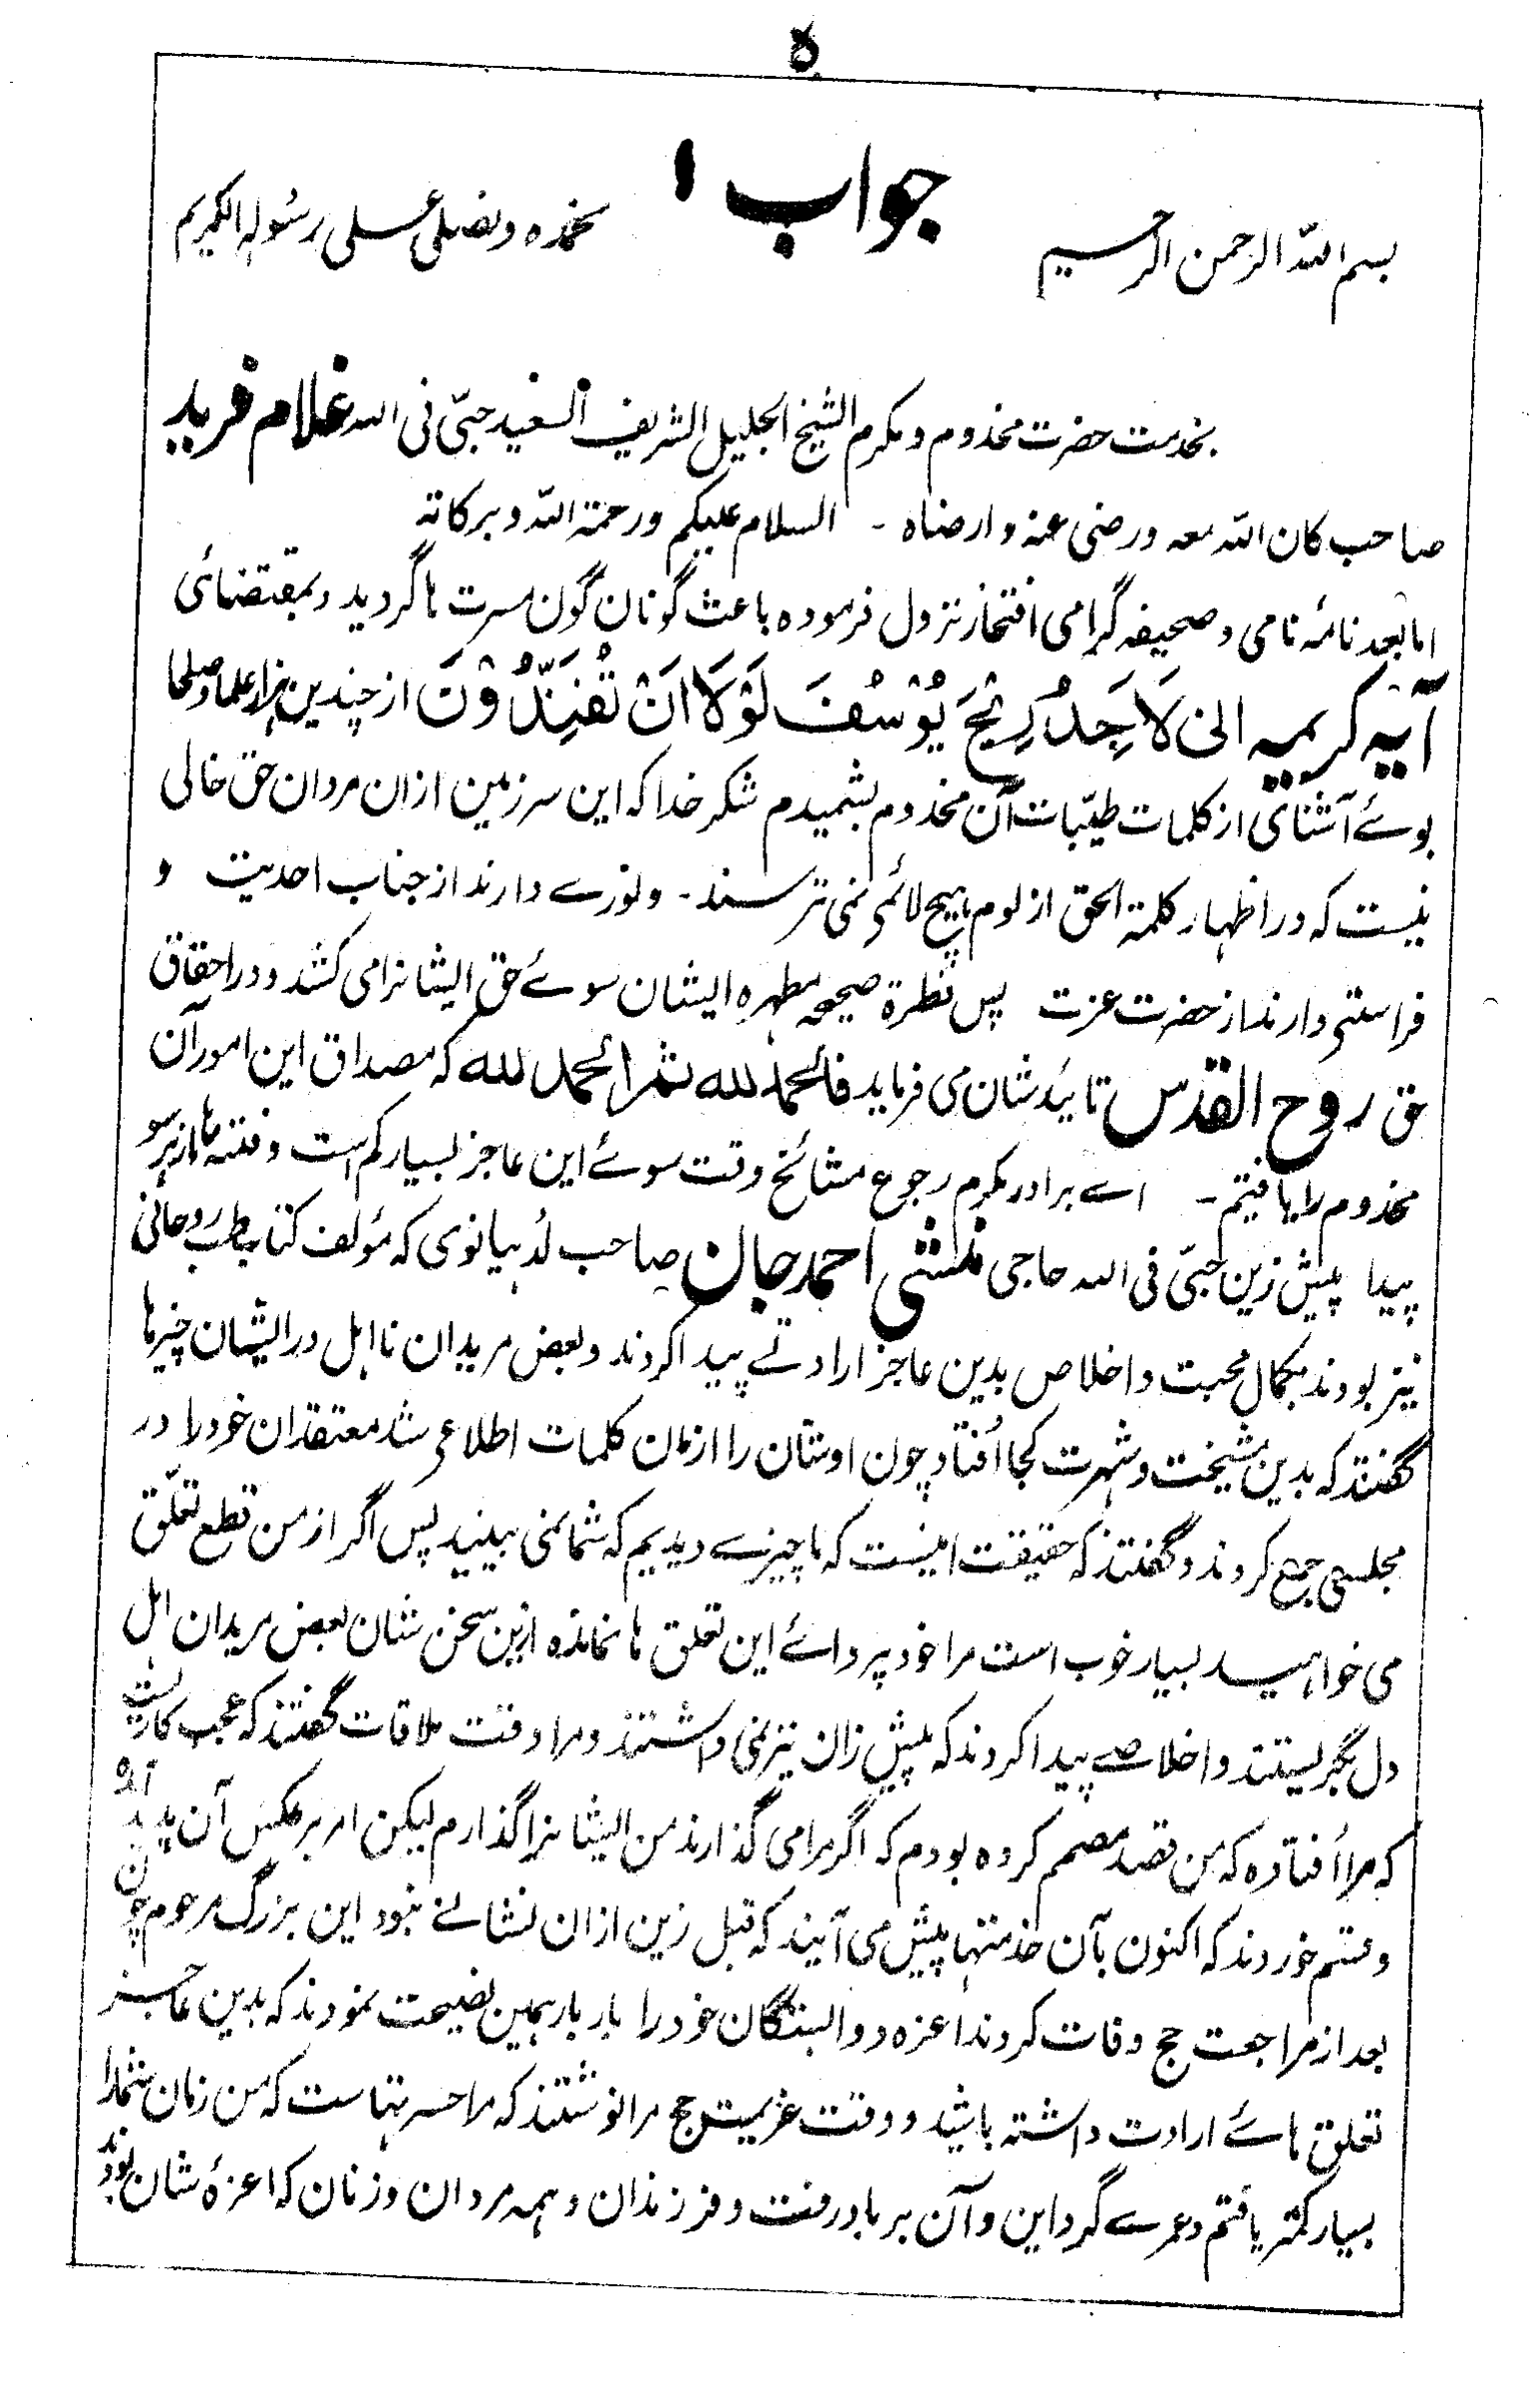 ۵
جواب ۱
بسم اللہ الرحمن الرحیم نحمدہ ونصلی علی رسولہ الکریم
بخدمت حضرت مخدوم و مکرم الشیخ الجلیل الشریف السعید حبّی فی اللہ غلام فرید
صاحب کان اللہ معہ ورضی عنہ وارضاہ - السلام علیکم ورحمۃ اللہ وبرکاتہ
اما بعد نامۂ نامی و صحیفہ گرامی افتخار نزول فرمودہ باعث گونان گون مسرت ہا گردید و بمقتضائی
آیہ کریمہ انی لَاَجِدُ رِیْحَ یُوْسُفَ لَوْلَا اَنْ تُفَنِّدُوْنَ از چندین ہزار علما و صلحا
بوئے آشنائی از کلمات طیّبات آن مخدوم بشمیدم شکر خدا کہ این سرزمین ازان مردان حق خالی
نیست کہ در اظہار کلمۃ الحق از لوم ہیچ لائمی نمی ترسند - و نورے دارند از جناب احدیت و
فراستی دارند از حضرت عزت پس فطرۃ صحیحہ مطہرہ ایشان سوئے حق ایشانرا می کشد و در احقاق
حق روح القدس تائید شان می فرماید فالحمد للہ ثم الحمد للہ کہ مصداق این امور آن
مخدوم را یافتیم - اے برادر مکرم رجوع مشائخ وقت سوئے این عاجز بسیار کم است و فتنہ ہا از ہر سو
پیدا پیش زین حبّی فی اللہ حاجی منشی احمد جان صاحب لدہیانوی کہ مؤلف کتاب طب روحانی
نیز بودند بکمال محبت و اخلاص بدین عاجز ارادتے پیدا کردند و بعض مریدان نااہل در ایشان چیزہا
گفتند کہ بدین مشیخت و شہرت کجا اُفتاد چون اوشان را ازان کلمات اطلاعی شد معتقدان خود را در
مجلسی جمع کردند و گفتند کہ حقیقت اینست کہ ما چیزے دیدیم کہ شما نمی بینید پس اگر از من قطع تعلّق
می خواہید بسیار خوب است مرا خود پروائے این تعلق ہا نماندہ ازین سخن شان بعض مریدان اہل
دل بگریستند و اخلاصے پیدا کردند کہ پیش زان نیز نمی داشتند و مرا وقت ملاقات گفتند کہ عجب کاریست
کہ مرا اُفتادہ کہ من قصد مصمم کردہ بودم کہ اگر مرا می گذارند من ایشانرا گذارم لیکن امر برعکس آن پدید آمد
و قسم خوردند کہ اکنون بآن خدمتہا پیش می آیند کہ قبل زین ازان نشانے نبود این بزرگ مرحوم چون
بعد از مراجعت حج وفات کردند اعزہ و وابستگان خود را بار بار ہمین نصیحت نمودند کہ بدین عاجز
تعلق ہائے ارادت داشتہ باشید و وقت عزیمت حج مرا نوشتند کہ مرا حسرتہاست کہ من زمان شما را
بسیار کمتر یافتم و عمرے گرد این و آن برباد رفت و فرزندان و ہمہ مردان و زنان کہ اعزۂ شان بودند